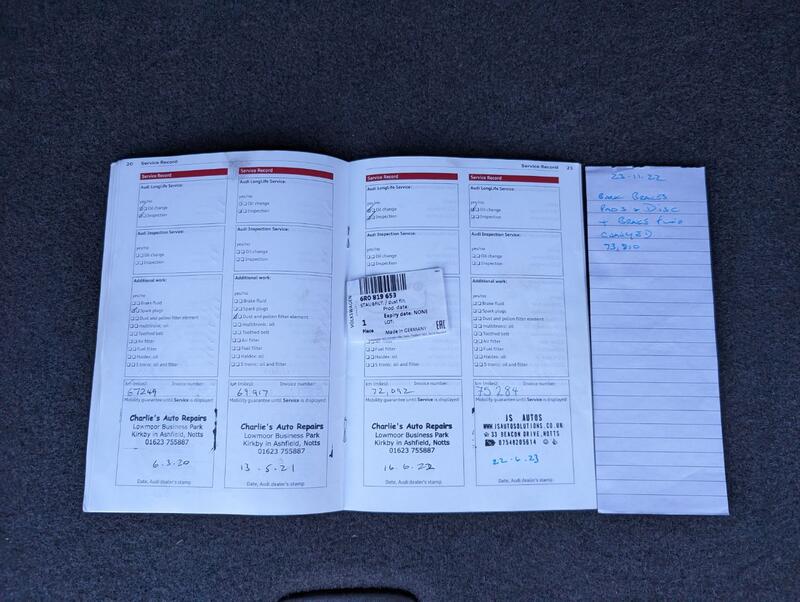 20 Service Record
Service Record
Audi LongLife Service:
yes/no
Oil change
Inspection
Audi Inspection Service:
yes/no
Oil change
Inspection
Additional work:
yes/no
Brake fluid
Spark plugs
Dust and pollen filter element
multitronic: oil
Toothed belt
Air filter
Fuel filter
Haldex: oil
S tronic: oil and filter
km (miles): Invoice number:
67249
Mobility guarantee until Service is displayed
Charlie's Auto Repairs
Lowmoor Business Park
Kirkby in Ashfield, Notts
01623 755887
6.3.20
Date, Audi dealer's stamp
Service Record
Audi LongLife Service:
yes/no
Oil change
Inspection
Audi Inspection Service:
yes/no
Oil change
Inspection
Additional work:
yes/no
Brake fluid
Spark plugs
Dust and pollen filter element
multitronic: oil
Toothed belt
Air filter
Fuel filter
Haldex: oil
S tronic: oil and filter
km (miles): Invoice number:
69,917
Mobility guarantee until Service is displayed
Charlie's Auto Repairs
Lowmoor Business Park
Kirkby in Ashfield, Notts
01623 755887
13.5.21
Date, Audi dealer's stamp
Service Record 21
Service Record
Audi LongLife Service:
yes/no
Oil change
Inspection
Audi Inspection Service:
yes/no
Oil change
Inspection
VOLKSWAGEN
6R0 819 653
STAUBFILT. / dust filt.
Prod. date:
Expiry date: NONE
LOT:
1
Piece
Made in GERMANY
EAC
Air filter
Fuel filter
Haldex: oil
S tronic: oil and filter
km (miles): Invoice number:
72,092
Mobility guarantee until Service is displayed
Charlie's Auto Repairs
Lowmoor Business Park
Kirkby in Ashfield, Notts
01623 755887
16.6.22
Date, Audi dealer's stamp
Service Record
Audi LongLife Service:
yes/no
Oil change
Inspection
Audi Inspection Service:
yes/no
Oil change
Inspection
Additional work:
yes/no
Brake fluid
Spark plugs
Dust and pollen filter element
multitronic: oil
Toothed belt
Air filter
Fuel filter
Haldex: oil
S tronic: oil and filter
km (miles): Invoice number:
75284
Mobility guarantee until Service is displayed
JS AUTOS
WWW.JSAUTOSOLUTIONS.CO.UK
33 BEACON DRIVE, NOTTS
07549205614
22.6.23
Date, Audi dealer's stamp
23-11-22
PADS & DISC
+ BRAKS FLUID
73,810